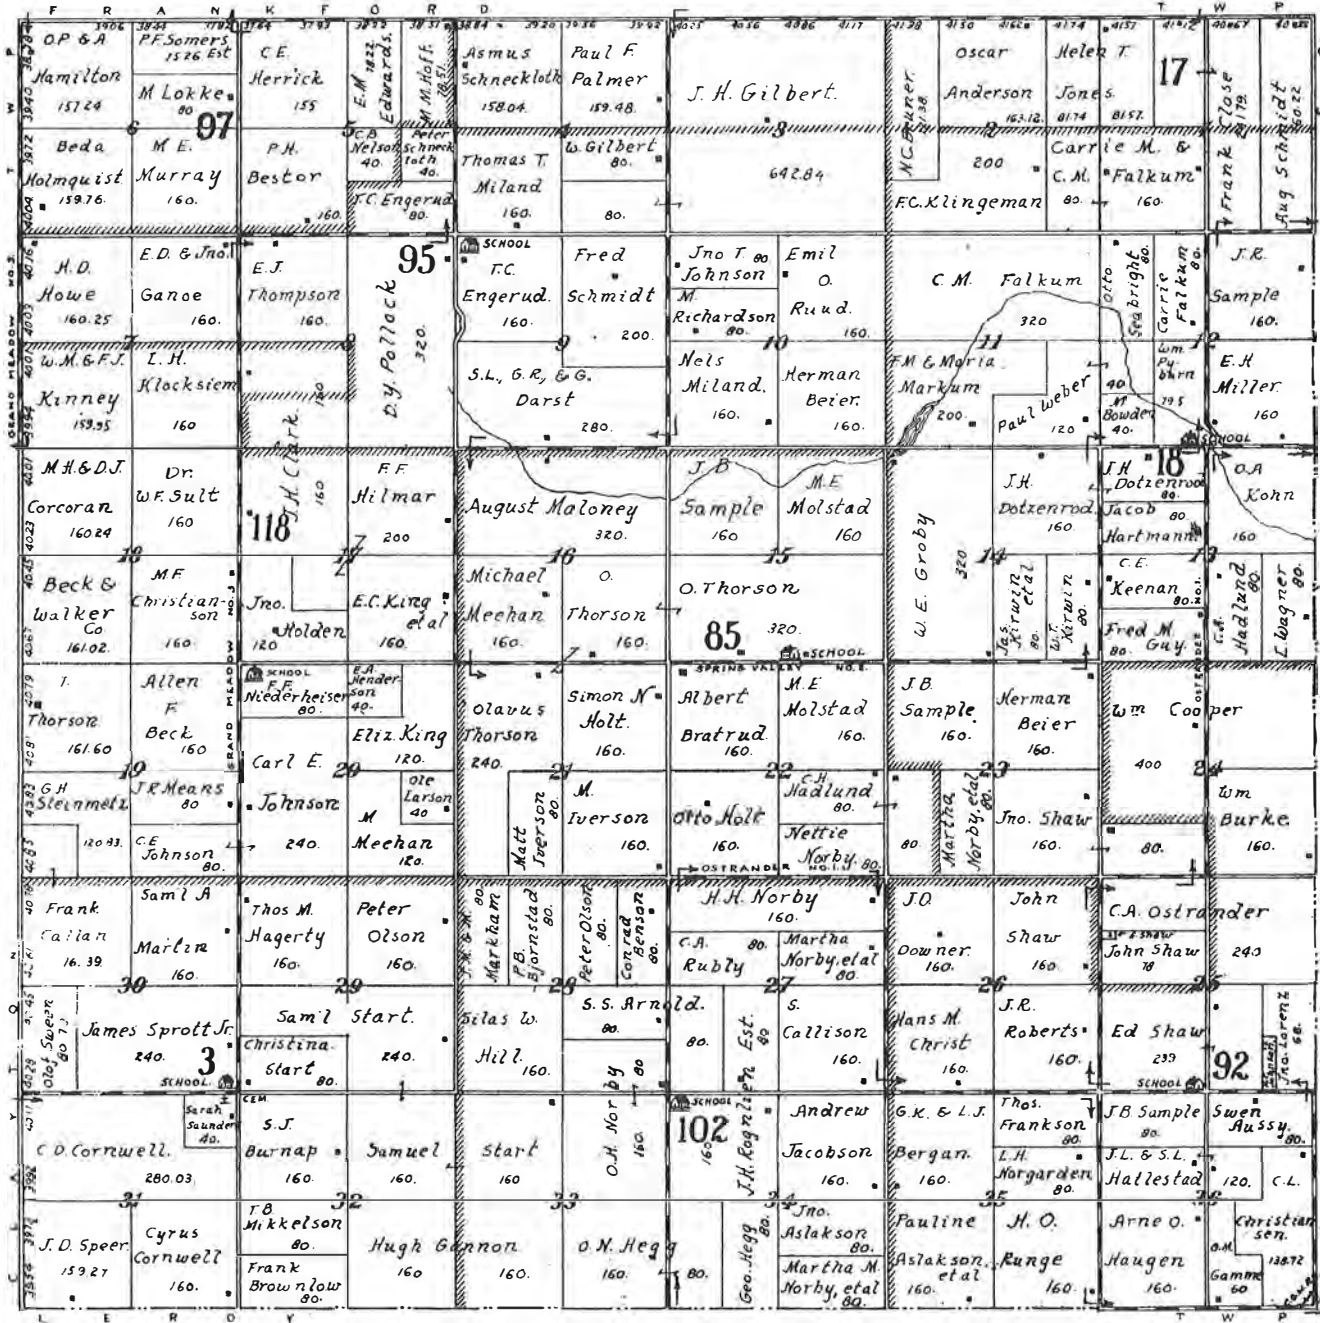 F R A N K F O R D T W P
3906 3844
O.P. & A
Hamilton
157.24
P.F. Somers
15.26 Est
M Lokke
80
97
C.E.
Herrick
155
E.M. Edwards.
78.22
M.M. Hoff.
78.51
Asmus
Schneckloth
158.04.
Paul F.
Palmer
159.48.
J. H. Gilbert.
642.84
N.C. Bruner.
Oscar
Anderson
163.12.
Helen T.
Jones
81.74 81.57.
17
Frank Close
Aug Schmidt
6
5
4
3
2
Beda
Holmquist
159.76.
M E.
Murray
160.
P.H.
Bestor
160.
C.B.
Nelson
40.
Peter
Schneck
loth
40.
T.C. Engerud
80.
Thomas T.
Miland
160.
W. Gilbert
80.
80.
200
F.C. Klingeman
Carrie M. &
C.M. Falkum
80. 160.
H.D.
Howe
160.25
E.D. & Jno.
Ganoe
160.
E.J.
Thompson
160.
95
D.Y. Pollock
320.
SCHOOL
T.C.
Engerud.
160.
Fred
Schmidt
200.
Jno T. 80
Johnson
M.
Richardson
80.
Emil
O.
Ruud.
160.
C. M. Falkum
320
Otto
Seabright
80.
Carrie
Falkum
80.
J.R.
Sample
160.
7
8
9
10
11
12
GRAND MEADOW NO.3.
W.M. & F.J.
Kinney
159.95
L.H.
Klocksiem
160
J.H. Clark.
160
160
S.L., G.R., & G.
Darst
280.
Nels
Miland.
160.
Herman
Beier.
160.
F.M & Maria
Markum
200.
Paul Weber
120
Wm.
Py-
burn
79.5
40
M
Bowden
40.
E.H.
Miller.
160
SCHOOL
M.H. & D.J.
Corcoran
160.24
Dr.
W.F. Sult
160
118
F.F.
Hilmar
200
August Maloney
320.
J.B
Sample
160
M.E
Molstad
160
W.E. Groby
320
J.H.
Dotzenrod.
160.
J H 18
Dotzenrod
80.
Jacob 80
Hartmann
O.A
Kohn
160
18
17
16
15
14
13
Beck &
Walker
Co
161.02.
M.F.
Christian-
son
160.
Jno.
Holden
120
E.C. King
et al
160.
Michael
Meehan
160.
O.
Thorson
160.
O. Thorson
85
320.
SCHOOL
Jas.
Kirwin
et al
80.
W.T.
Kirwin
80.
C.E.
Keenan
80.
Fred M.
Guy.
80.
Hadlund
80.
L. Wagner
80.
GRAND MEADOW NO.3
SPRING VALLEY NO.2.
OSTRANDER NO.1.
T.
Thorson
161.60
Allen
F.
Beck
160
SCHOOL
F.F.
Niederheiser
80.
E.A.
Hender-
son
40.
Eliz. King
120.
Olavus
Thorson
240.
Simon N
Holt.
160.
Albert
Bratrud.
160.
M.E
Molstad
160.
J.B.
Sample.
160.
Herman
Beier
160.
Wm Cooper
400
19
20
21
22
23
24
G H
Steinmetz
120.83.
J.R Means
80
C.E
Johnson
80.
Carl E.
Johnson
240.
Ole
Larson
40
M
Meehan
120.
Matt
Iverson
80.
M.
Iverson
160.
Otto Holt
C.H.
Hadlund
80.
Nettie
Norby. 80.
80
Martha
Norby, etal
80.
Jno. Shaw
160.
80.
Wm
Burke.
160.
OSTRANDER NO.1.
Frank
16.39
Saml A
Martin
160.
Thos M.
Hagerty
160.
Peter
Olson
160.
J.M. & M.
Markham
80
P.B.
Bjornstad
80.
Peter Olson
80.
Conrad
Benson
80.
H.H. Norby
160.
C.A. 80.
Rubly
Martha
Norby, etal
80.
J.O.
Downer.
160.
John
Shaw
160.
C.A. Ostrander
240
John Shaw
78
30
29
28
27
26
Olof Sween
James Sprott Jr.
240.
3
SCHOOL.
Sam'l Start.
240.
Christina.
Start
80.
Silas W.
Hill.
160.
S.S. Arnold.
80. 80.
O.H. Norby
80
160.
J.H. Rognlien Est.
80
160
S.
Callison
160.
Hans M.
Christ
160.
J.R.
Roberts
160.
Ed Shaw
239
SCHOOL
92
Jna. Lorenz
68.
Sarah
Saunder
40.
CEM.
C D Cornwell.
280.03.
S.J.
Burnap
160.
Samuel Start
160. 160
SCHOOL
102
Andrew
Jacobson
160.
G.K. & L.J.
Bergan.
160.
Thos.
Frankson
80.
L.H.
Norgarden
80.
J.B Sample
80.
J.L. & S.L.
Hallestad
Swen
Aussy.
80.
120.
31
32
33
34
35
J.D. Speer.
159.27
Cyrus
Cornwell
160.
T.B
Mikkelson
80.
Frank
Brownlow
80.
Hugh Gannon
160 160.
O.N. Hegg
160. 80.
Geo. Hegg
80.
Jno.
Aslakson
80.
Martha M.
Norby, etal
80.
Pauline
Aslakson,
et al
160.
H. O.
Runge
160.
Arne O.
Haugen
160.
C.L.
Christian
sen.
138.72
O.M.
Gamme
60
C L A Y T O N
T W P